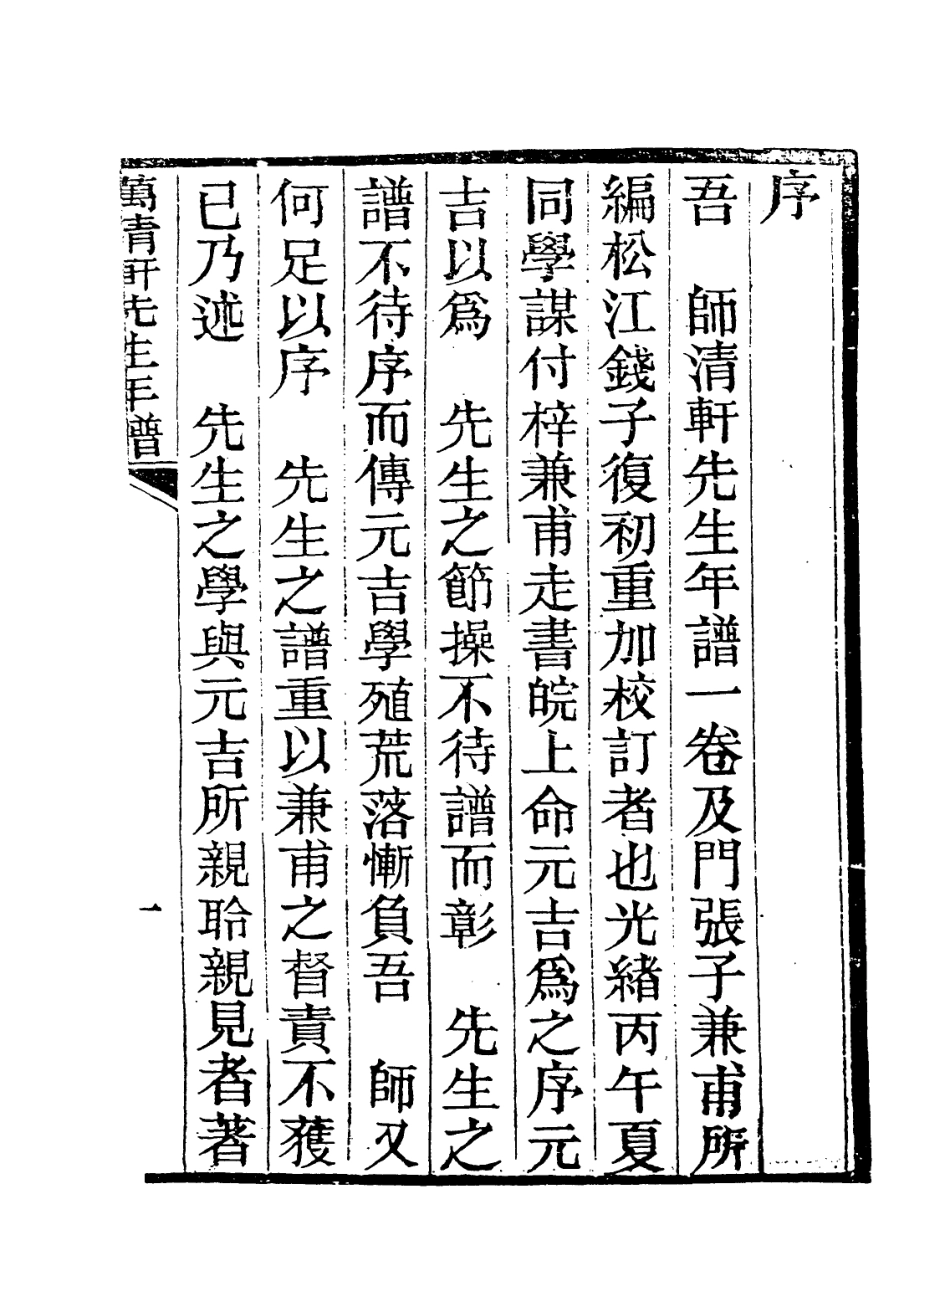 序
吾　師清軒先生年譜一卷及門張子兼甫所
編松江錢子復初重加校訂者也光緒丙午夏
同學謀付梓兼甫走書皖上命元吉爲之序元
吉以爲　先生之節操不待譜而彰　先生之
譜不待序而傳元吉學殖荒落慚負吾　師又
何足以序　先生之譜重以兼甫之督責不獲
已乃述　先生之學與元吉所親聆親見者著
萬清軒先生年譜
一